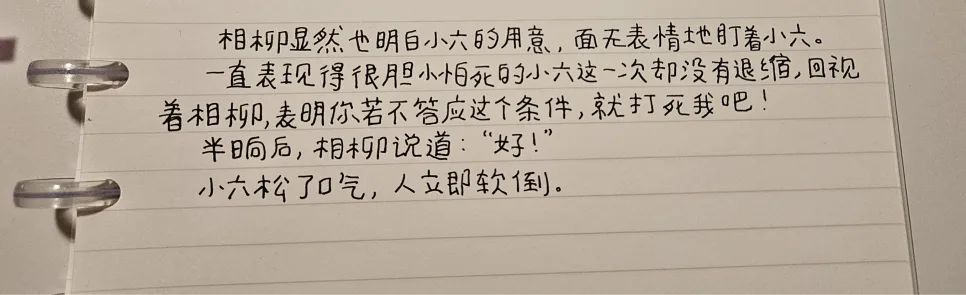 相柳显然也明白小六的用意，面无表情地盯着小六。
一直表现得很胆小怕死的小六这一次却没有退缩，回视
着相柳，表明你若不答应这个条件，就打死我吧！
半晌后，相柳说道：“好！”
小六松了口气，人立即软倒。